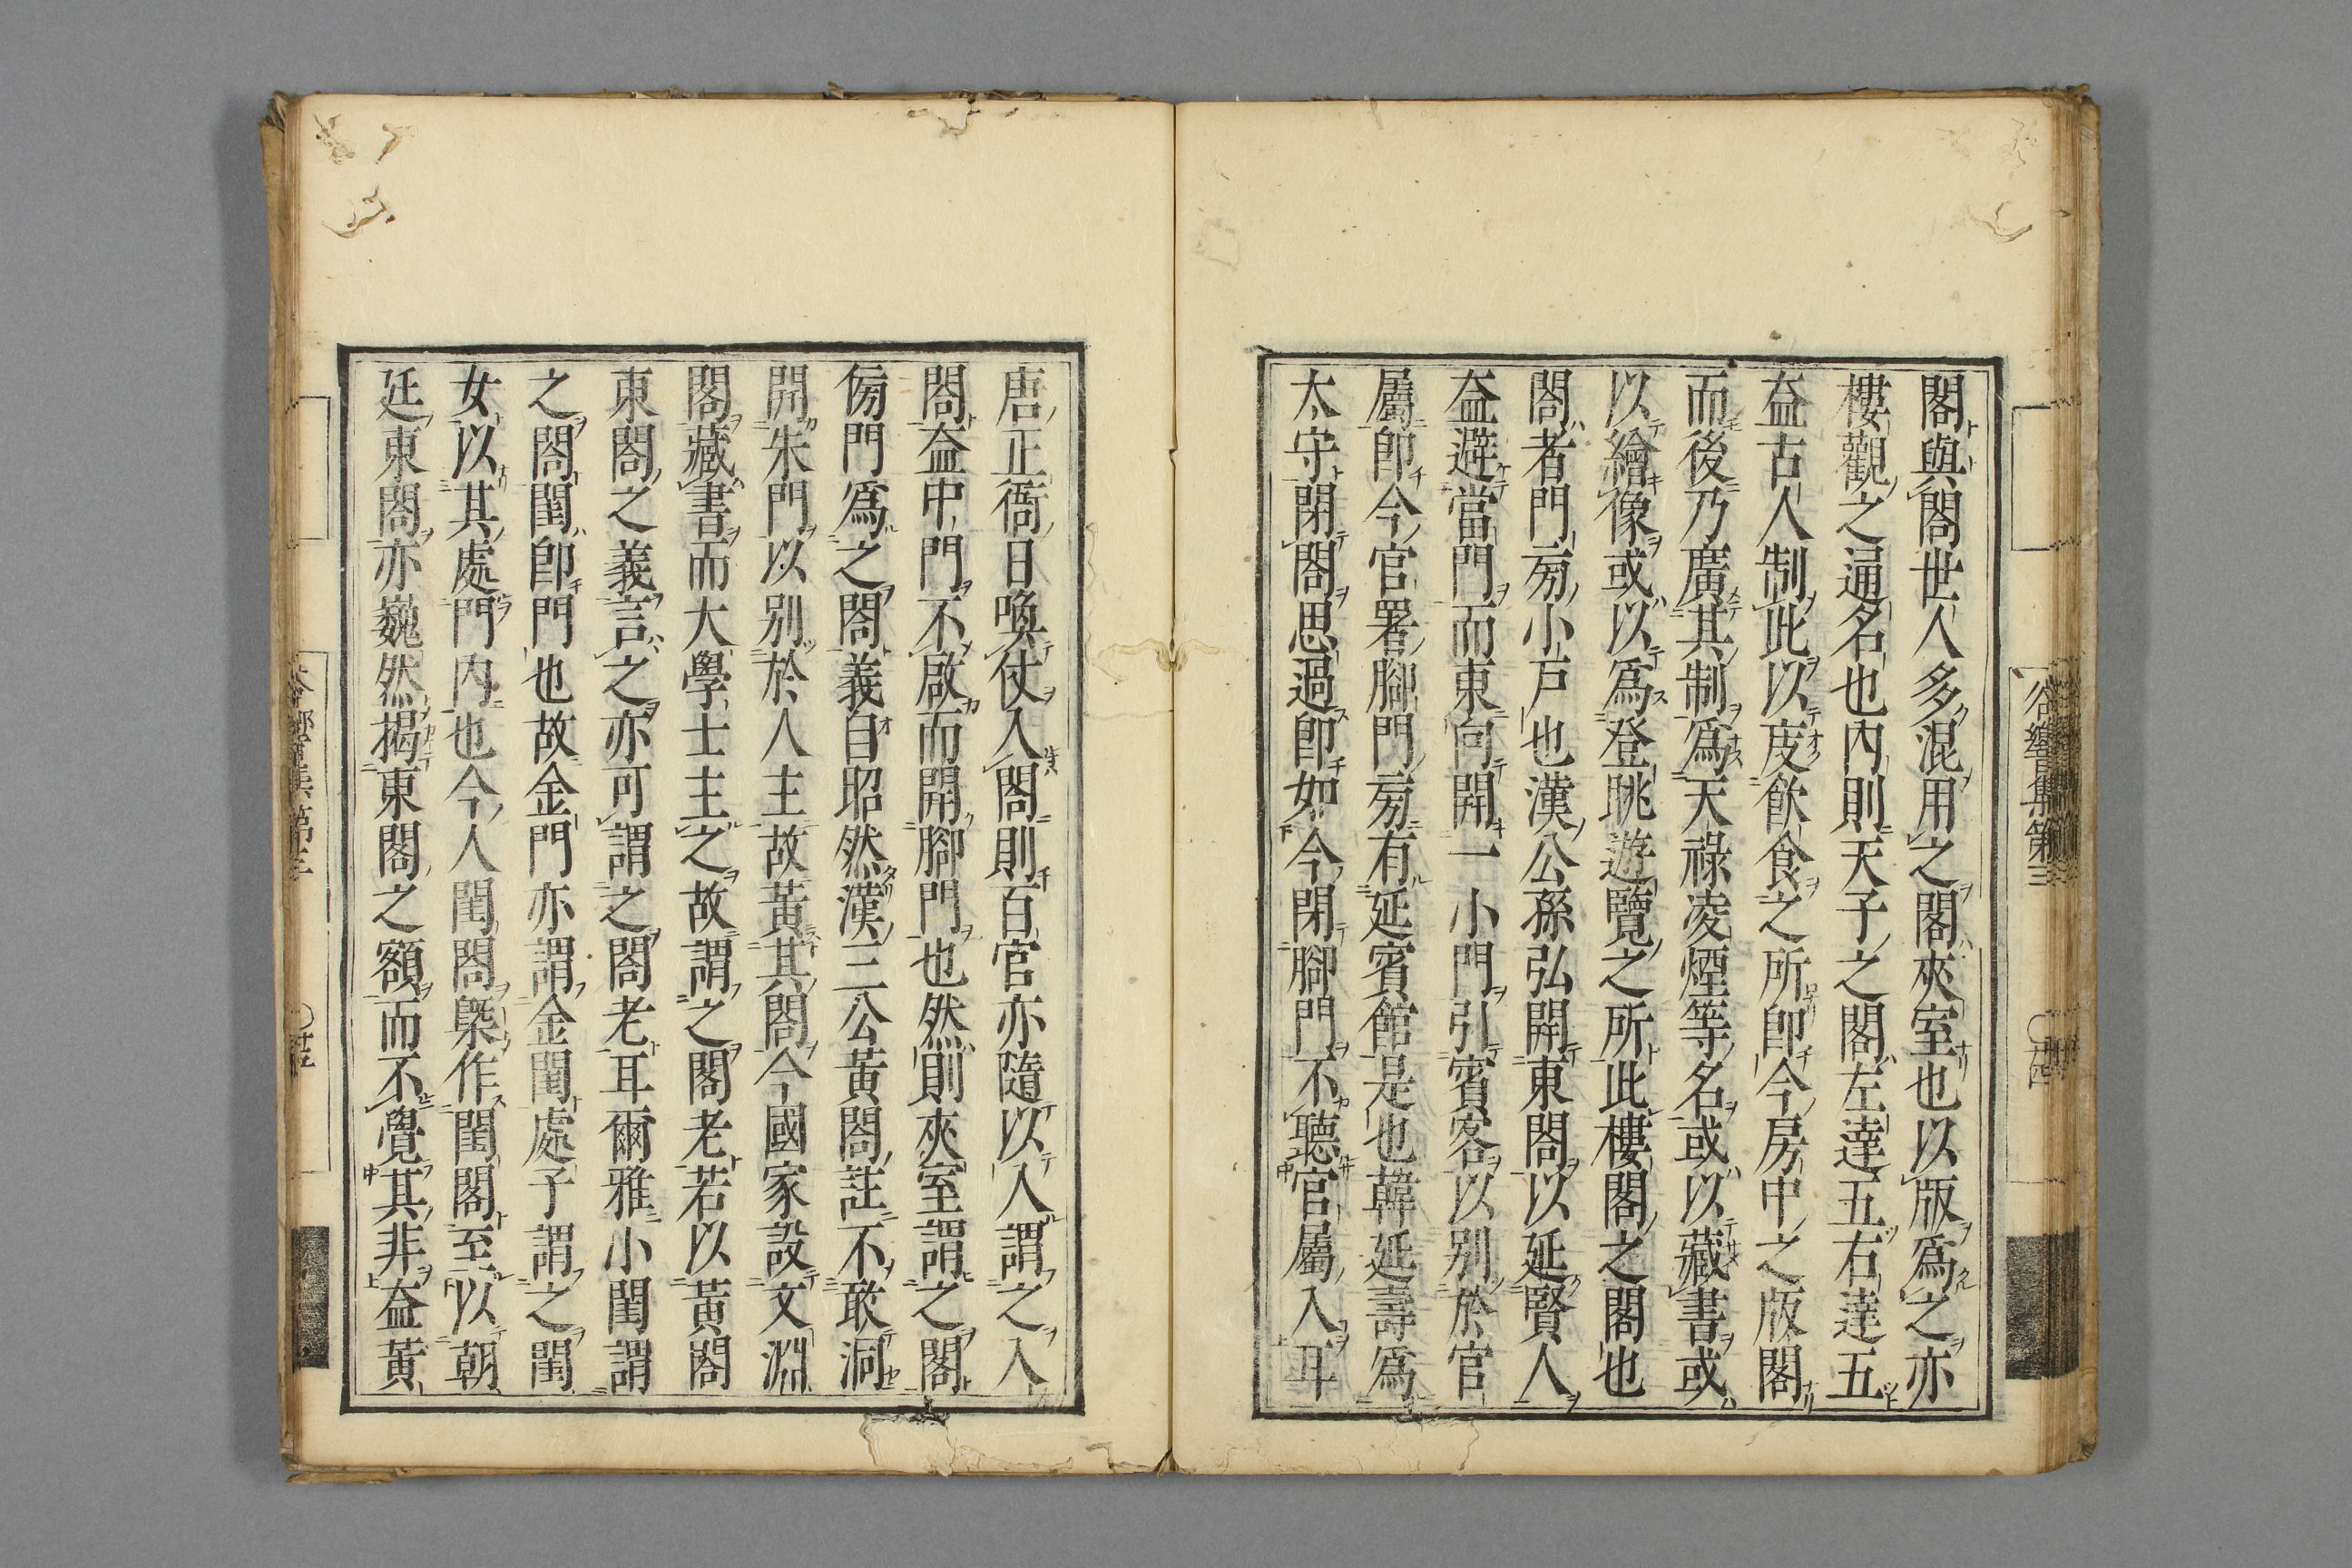 閣與閤世人多混用之閣夾室也以版爲之亦
樓觀之通名也內則天子之閣左達五右達五
益古人制此以庋飲食之所卽今房中之版閣
而後乃廣其制爲天祿凌煙等名或以藏書或
以繪像或以爲登眺遊覽之所此樓閣之閣也
閤者門㫄小戶也漢公孫弘開東閤以延賢人
益避當門而東向開一小門引賓客以別於官
屬卽今官署腳門㫄有延賓館是也韓延壽爲
太守閉閤思過卽如今閉腳門不聽官屬入耳
唐正衙日喚仗入閤則百官亦隨以入謂之入
閤益中門不啟而開腳門也然則夾室謂之閣
傍門爲之閤義自昭然漢三公黃閤註不敢洞
開朱門以別於人主故黃其閤今國家設文淵
閣藏書而大學士主之故謂之閣老若以黃閤
東閤之義言之亦可謂之閤老耳爾雅小閨謂
之閤閨卽門也故金門亦謂金閨處子謂之閨
女以其處門內也今人閨閤槩作閨閣至以朝
延東閤亦巍然揭東閣之額而不覺其非益黃
谷響集第三
〇廿四
〇廿五